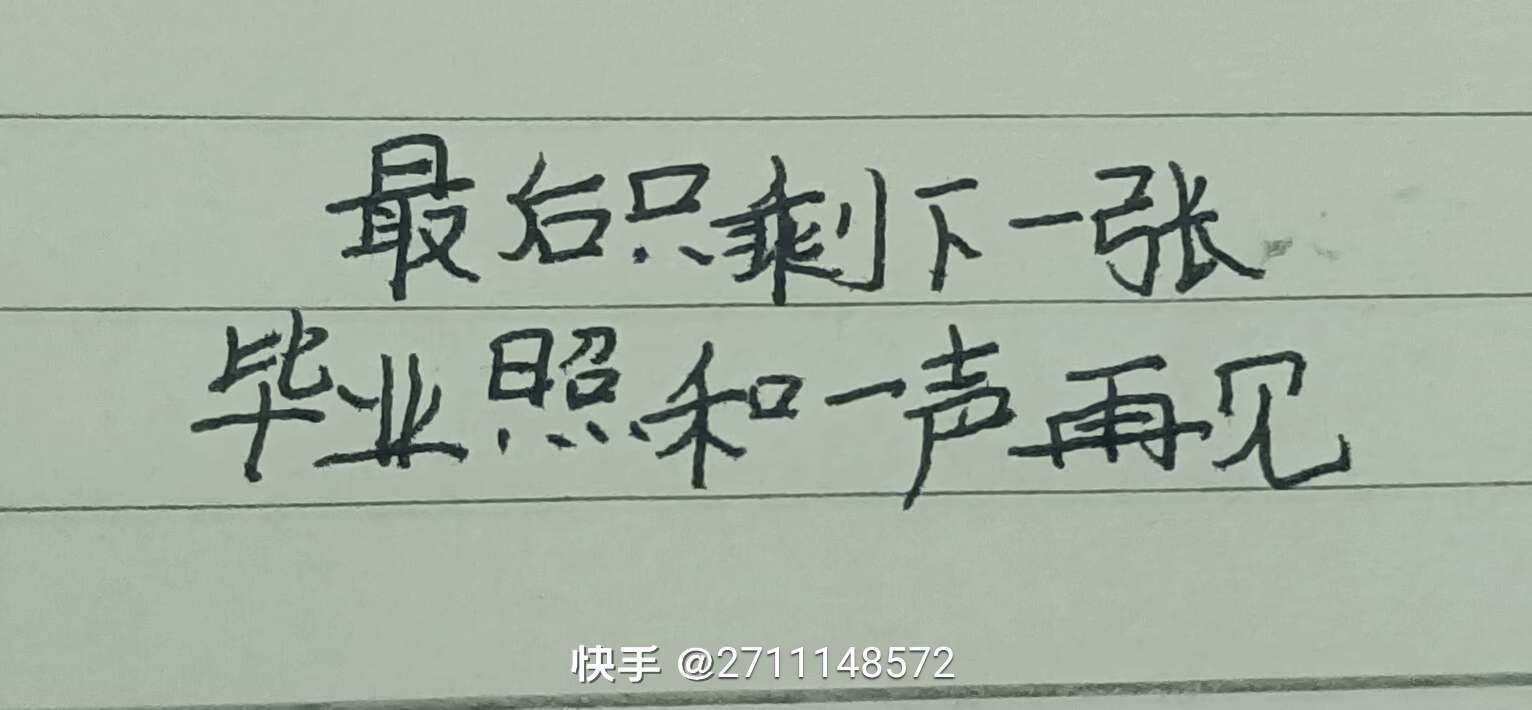 最后只剩下一张
毕业照和一声再见
快手 @2711148572